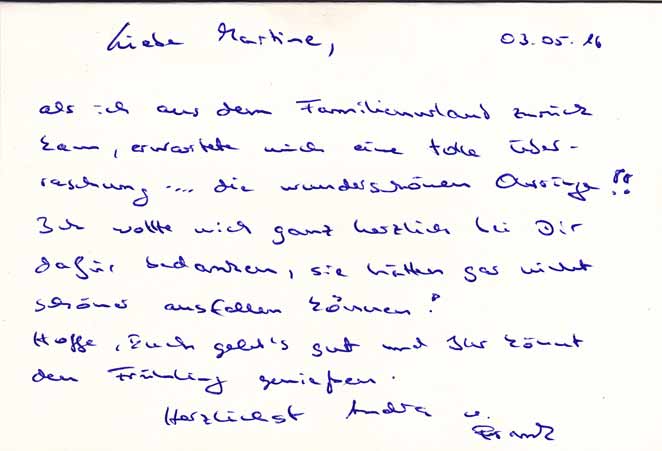 Liebe Martine, 03.05.16
als ich aus dem Familienurland zurück
kam, erwartete mich eine tolle Über-
raschung .... die wunderschönen Ohrringe!!
Ich wollte mich ganz herzlich bei Dir
dafür bedanken, sie hätten gar nicht
schöner ausfallen können!
Hoffe, Euch geht's gut und Ihr könnt
den Frühling genießen.
Herzlichst Andrea u.
Frank